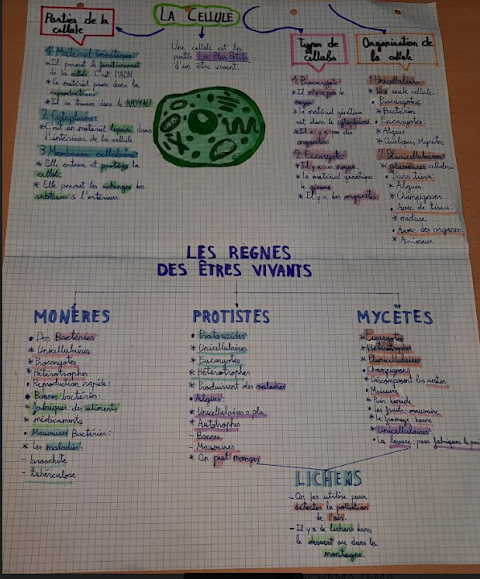 LA CELLULE
Une cellule est la
partie la Plus Petite
d'un être vivant.
Parties de la
cellule
1. Matériel Génétique
* Il permet le fonctionnement
de la cellule. C'est l'ADN
* Le matériel passe dans la
reproduction
* Il se trouve dans le NOYAU
2. Cytoplasme
* C'est un matériel liquide dans
l'intérieur de la cellule
3. Membrane cellulaire
* Elle entoure et protège la
cellule.
* Elle permet les échanges des
substances à l'intérieur
Types de
cellules
1. Procaryote
* Il n'y a pas de
noyau
* Le matériel génétique
est dans le cytoplasme
* Il n'y a pas des
organites
2. Eucaryote
* Il y a un noyau
* Le matériel génétique:
le génome
* Il y a des organites
Organisation de
la cellule
1. Unicellulaire
* Une seule cellule.
• Procaryotes:
* Bactéries
• Eucaryotes:
* Algues
* Quelques
2. Pluricellulaire
* cellules
• Sans tissu:
* Algues
* Champignons
• Avec de tissu:
* méduse
• Avec des organes:
* Animaux
LES RÈGNES
DES ÊTRES VIVANTS
MONÈRES
• Des Bactéries
* Unicellulaires
* Procaryotes
* Hétérotrophes
• Reproduction rapide:
• Bonnes bactéries:
* fabriquer des aliments
* médicaments
• Mauvaises Bactéries:
* Les maladies:
- bronchite
- tuberculose
PROTISTES
• Protozoaires
* Unicellulaires
* Eucaryotes
* Hétérotrophes
* Produisent des maladies
• Algues
* Unicellulaires o plu
* Autotrophes
- Bonnes
- Mauvaises
* On peut manger
MYCÈTES
* Eucaryotes
* Hétérotrophes
* Pluricellulaires
• Champignons
* Décomposent les restes
• Moisissure
* Pain
* Les fruits: mauvaise
* Le fromage bonne
* Unicellulaires:
• La levure: pour fabriquer le pain
LICHENS
- On les utilise pour
détecter la pollution
de l'air.
- Il y a de lichens dans
le désert ou dans la
montagne.